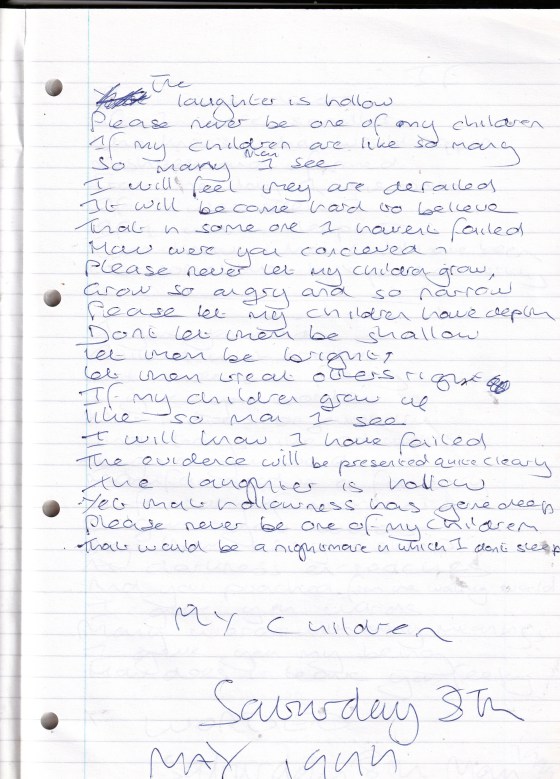 The
laughter is hollow
Please never be one of my children
If my children are like so many
So many man I see
I will feel they are derailed
It will become hard to believe
That in some one I havent failed
How were you concieved?
Please never let my children grow,
Grow so angry and so narrow
Please let my children have depth
Dont let them be shallow
Let them be bright,
Let them treat others right
If my children grow up
like so man I see
I will know I have failed
The evidence will be presented quite clearly
The laughter is hollow
Yet that hollowness has gone deep
Please never be one of my children
That would be a nightmare in which I dont sleep
MY Children
Saturday 8Th
MAY 1999